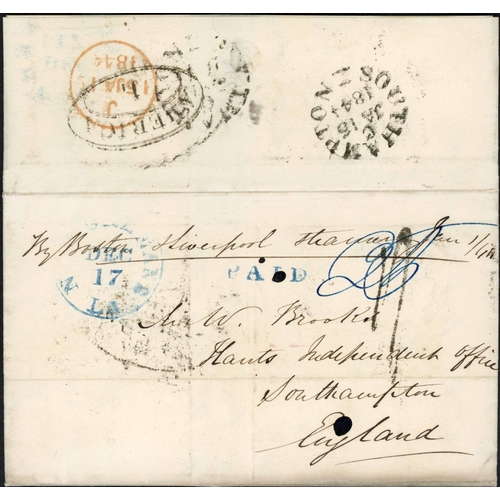 15 JA 15
1844
AMERICA
L
SOUTHAMPTON
JA 16
1844
By Boston & Liverpool steamer Jan 1/44
DEC
17
LA
PAID
Mr W. Brooks
Hants Independent Office
Southampton
England